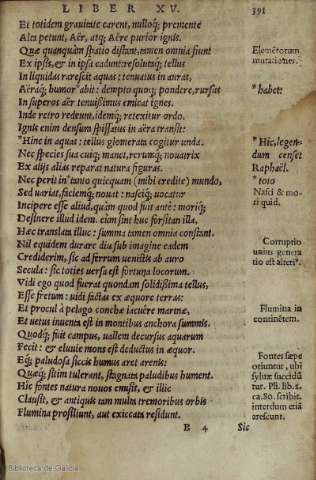 LIBER XV. 391
Et totidem grauitate carent, nulloq; premente
Alta petunt, Aër, atq; Aëre purior ignis.
Quæ quanquàm spatio distant, tamen omnia fiunt
Ex ipsis, & in ipsa cadunt: resolutaq; tellus
In liquidas rarescit aquas: tenuatus in auras,
Aëraq; humor abit: dempto quoq; pondere, rursus
In superos aër tenuissimus emicat ignes.
Inde retro redeunt, idemq; retexitur ordo.
Ignis enim densum spissatus in aëra transit:
*Hinc in aquas: tellus glomerata cogitur unda.
Nec species sua cuiq; manet, rerumq; nouatrix
Ex alijs alias reparat natura figuras.
Nec perit in *tanto quicquam (mihi credite) mundo,
Sed uariat, faciemq; nouat: nasciq; uocatur
Incipere esse aliud, quàm quod fuit antè: moriq;
Desinere illud idem. cùm sint huc forsitan illa,
Hæc translata illuc: summa tamen omnia constant.
Nil equidem durare diu sub imagine eadem
Crediderim, sic ad ferrum uenistis ab auro
Secula: sic toties uersa est fortuna locorum.
Vidi ego quod fuerat quondam solidissima tellus,
Esse fretum: uidi factas ex æquore terras:
Et procul à pelago conchæ iacuêre marinæ,
Et uetus inuenta est in montibus anchora summis.
Quodq; fuit campus, uallem decursus aquarum
Fecit: & eluuie mons est deductus in æquor.
Eq; paludosa siccis humus aret arenis:
Quæq; sitim tulerant, stagnata paludibus hument.
Hîc fontes natura nouos emisit, & illic
Clausit, & antiquis tam multa tremoribus orbis
Flumina prosiliunt, aut exiccata residunt.
E 4 Sic
Elemẽtorum
mutationes.
*habet:
*Hic, legen-
dum censet
Raphaël.
*toto
Nasci & mo-
ri quid.
Corruptio
unius genera
tio est alteriꝰ.
Flumina in
continẽtem.
Fontes sæpe
oriuntur, ubi
syluæ succidũ
tur. Pli. lib.
ca. 80. scribit.
interdum etiã
arescunt.
Biblioteca de Galicia